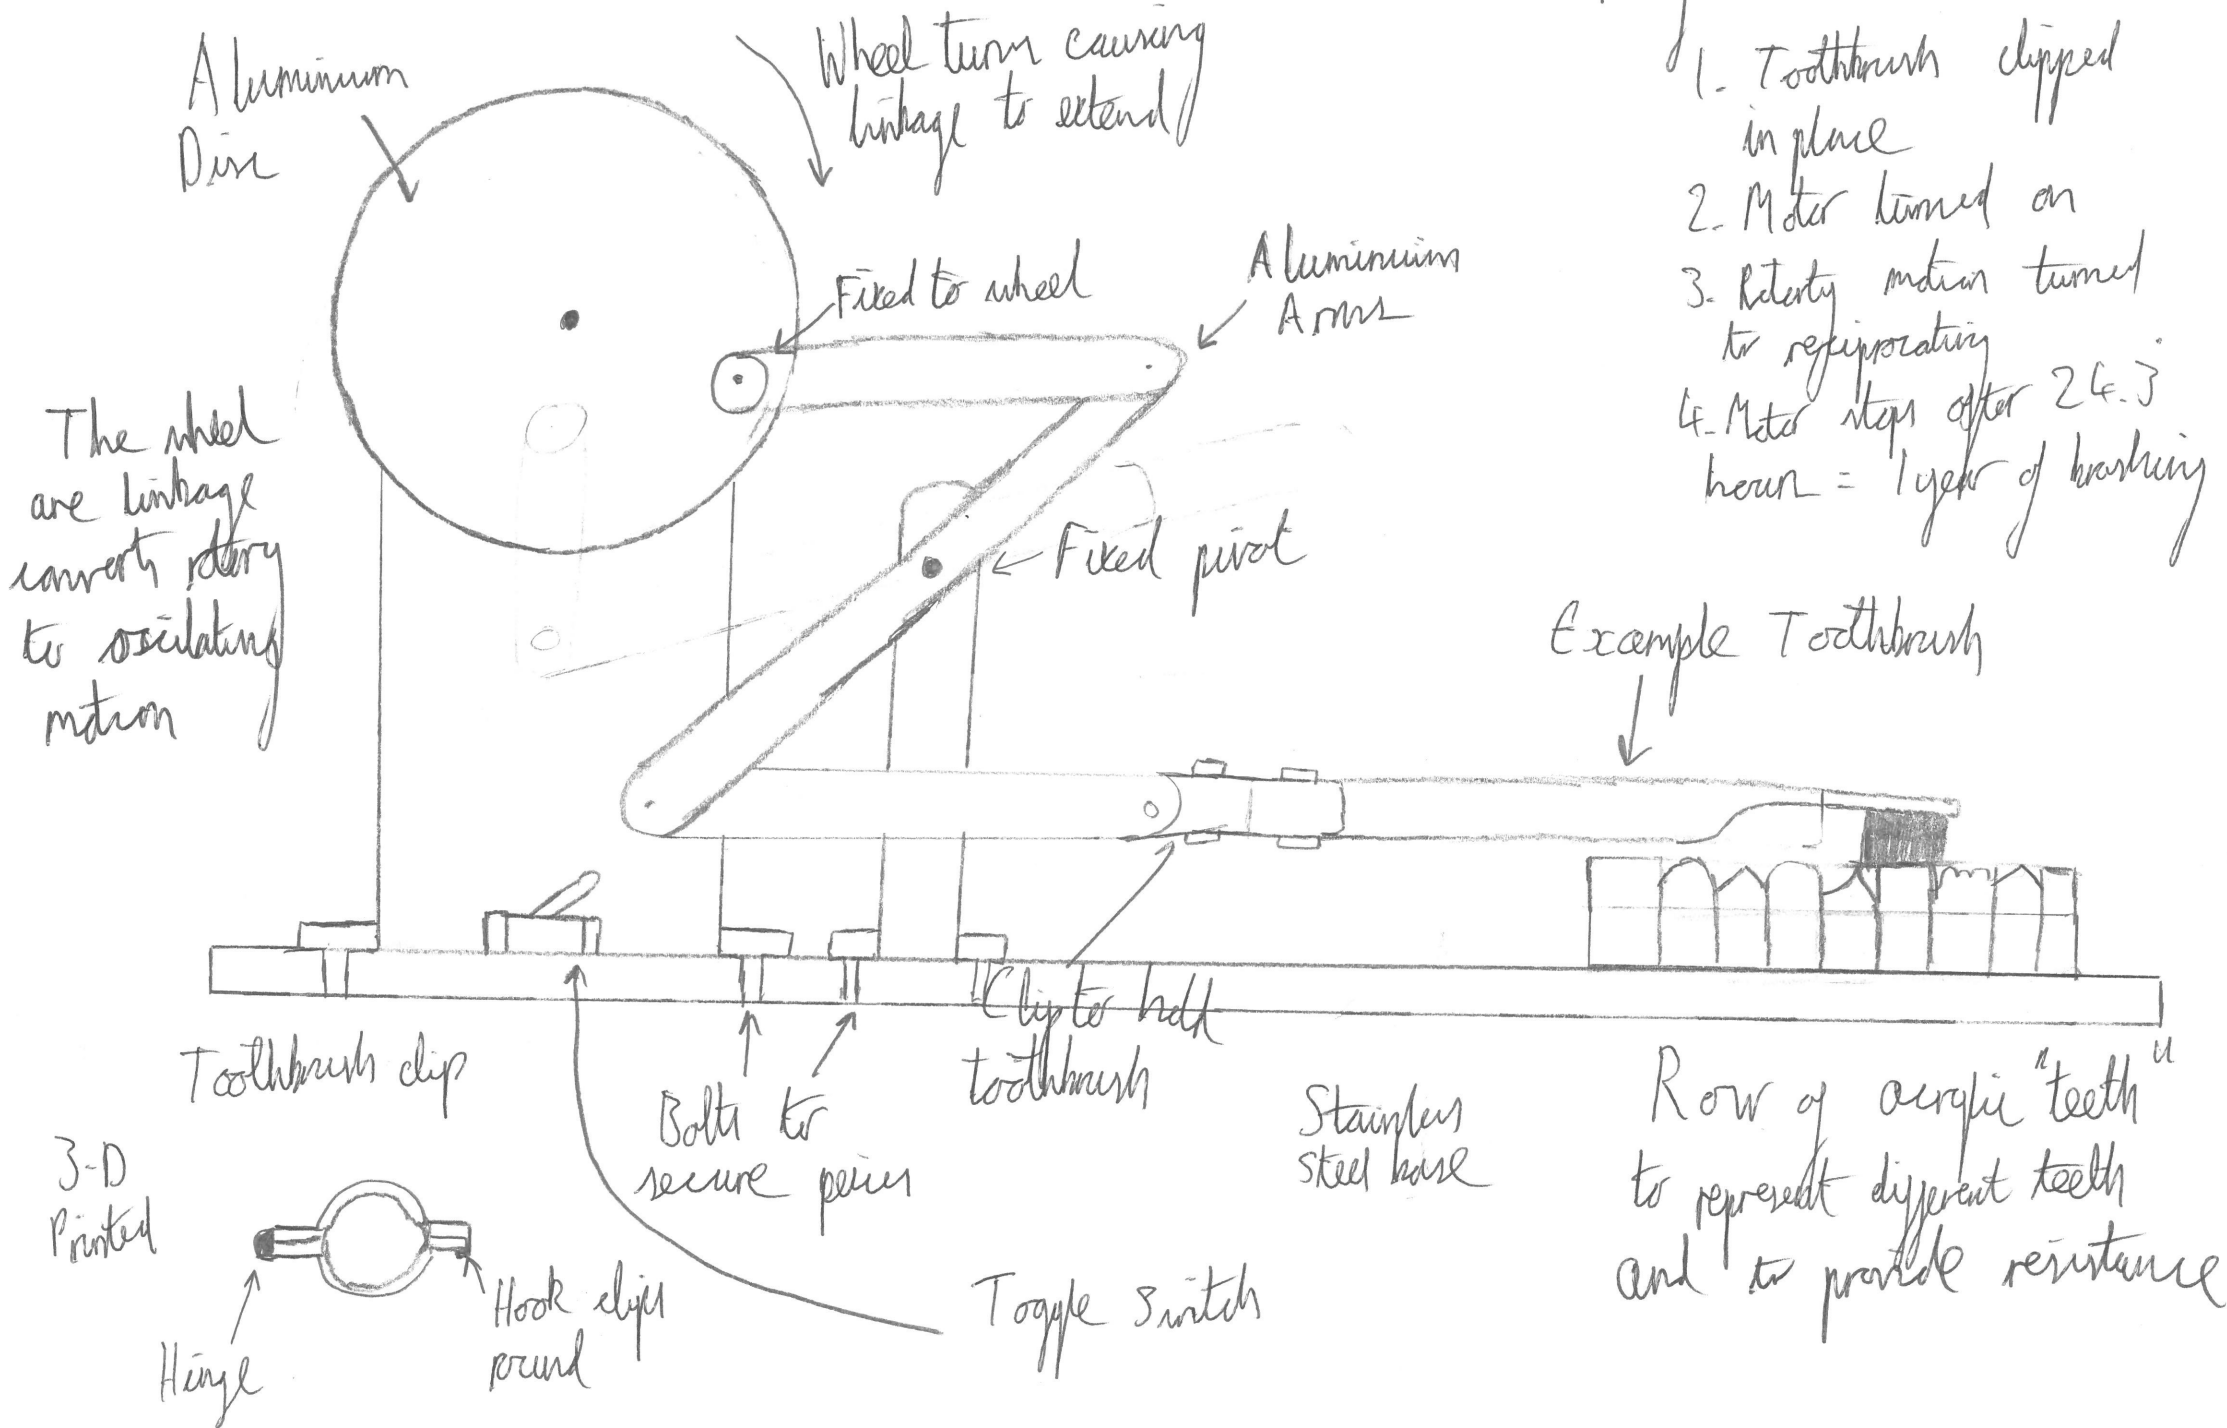 Aluminium
Disc
Wheel turn causing
linkage to extend
1. Toothbrush clipped
in place
2. Motor turned on
3. Rotarty motion turned
to reciprocating
4. Motor stops after 24.3
hours = 1 year of brushing
Fixed to wheel
Aluminium
Arms
The wheel
are linkage
converts rotary
to oscilating
motion
Fixed pivot
Example Toothbrush
Clip to hold
toothbrush
Toothbrush clip
Bolts to
secure peices
Stainless
steel base
Row of acrylic "teeth"
to represent different teeth
and to provide resistance
3-D
Printed
Hinge
Hook clips
round
Toggle Switch